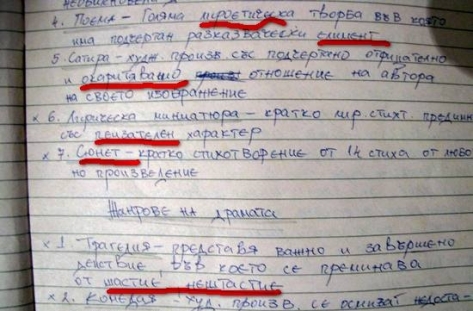 4. Поема - Голяма лироетическа творба във която
има подчертан разказвачески елимент
5. Сатира - худ. произв. със подчертано отрицателно
и окаритавано отношение на автора
на своето изображение
х 6. Лирическа миниатюра - кратко лир. стихт. предимн
със пеизателен характер
х 7. Сюнет - кратко стихотворение от 14 стиха от любо
но произведение
Жанрове на драмата
х 1. Трагелия - представя важно и завършено
действие, във което се преминава
от шастие нештастие
х 2. Комедая - худ. произв. се осмиват недоста-